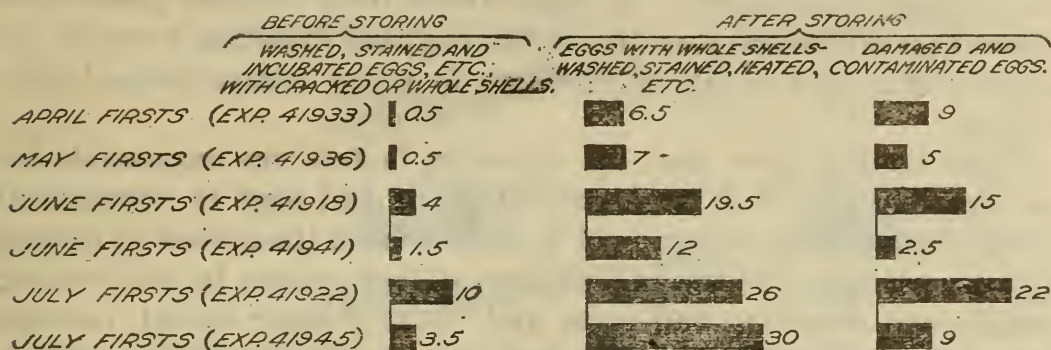 BEFORE STORING AFTER STORING
WASHED, STAINED AND INCUBATED EGGS, ETC., WITH CRACKED OR WHOLE SHELLS.
EGGS WITH WHOLE SHELLS- WASHED, STAINED, HEATED, ETC.
DAMAGED AND CONTAMINATED EGGS.
APRIL FIRSTS (EXP. 41933) 0.5 6.5 9
MAY FIRSTS (EXP. 41936) 0.5 7 5
JUNE FIRSTS (EXP. 41918) 4 19.5 15
JUNE FIRSTS (EXP. 41941) 1.5 12 2.5
JULY FIRSTS (EXP. 41922) 10 26 22
JULY FIRSTS (EXP. 41945) 3.5 30 9